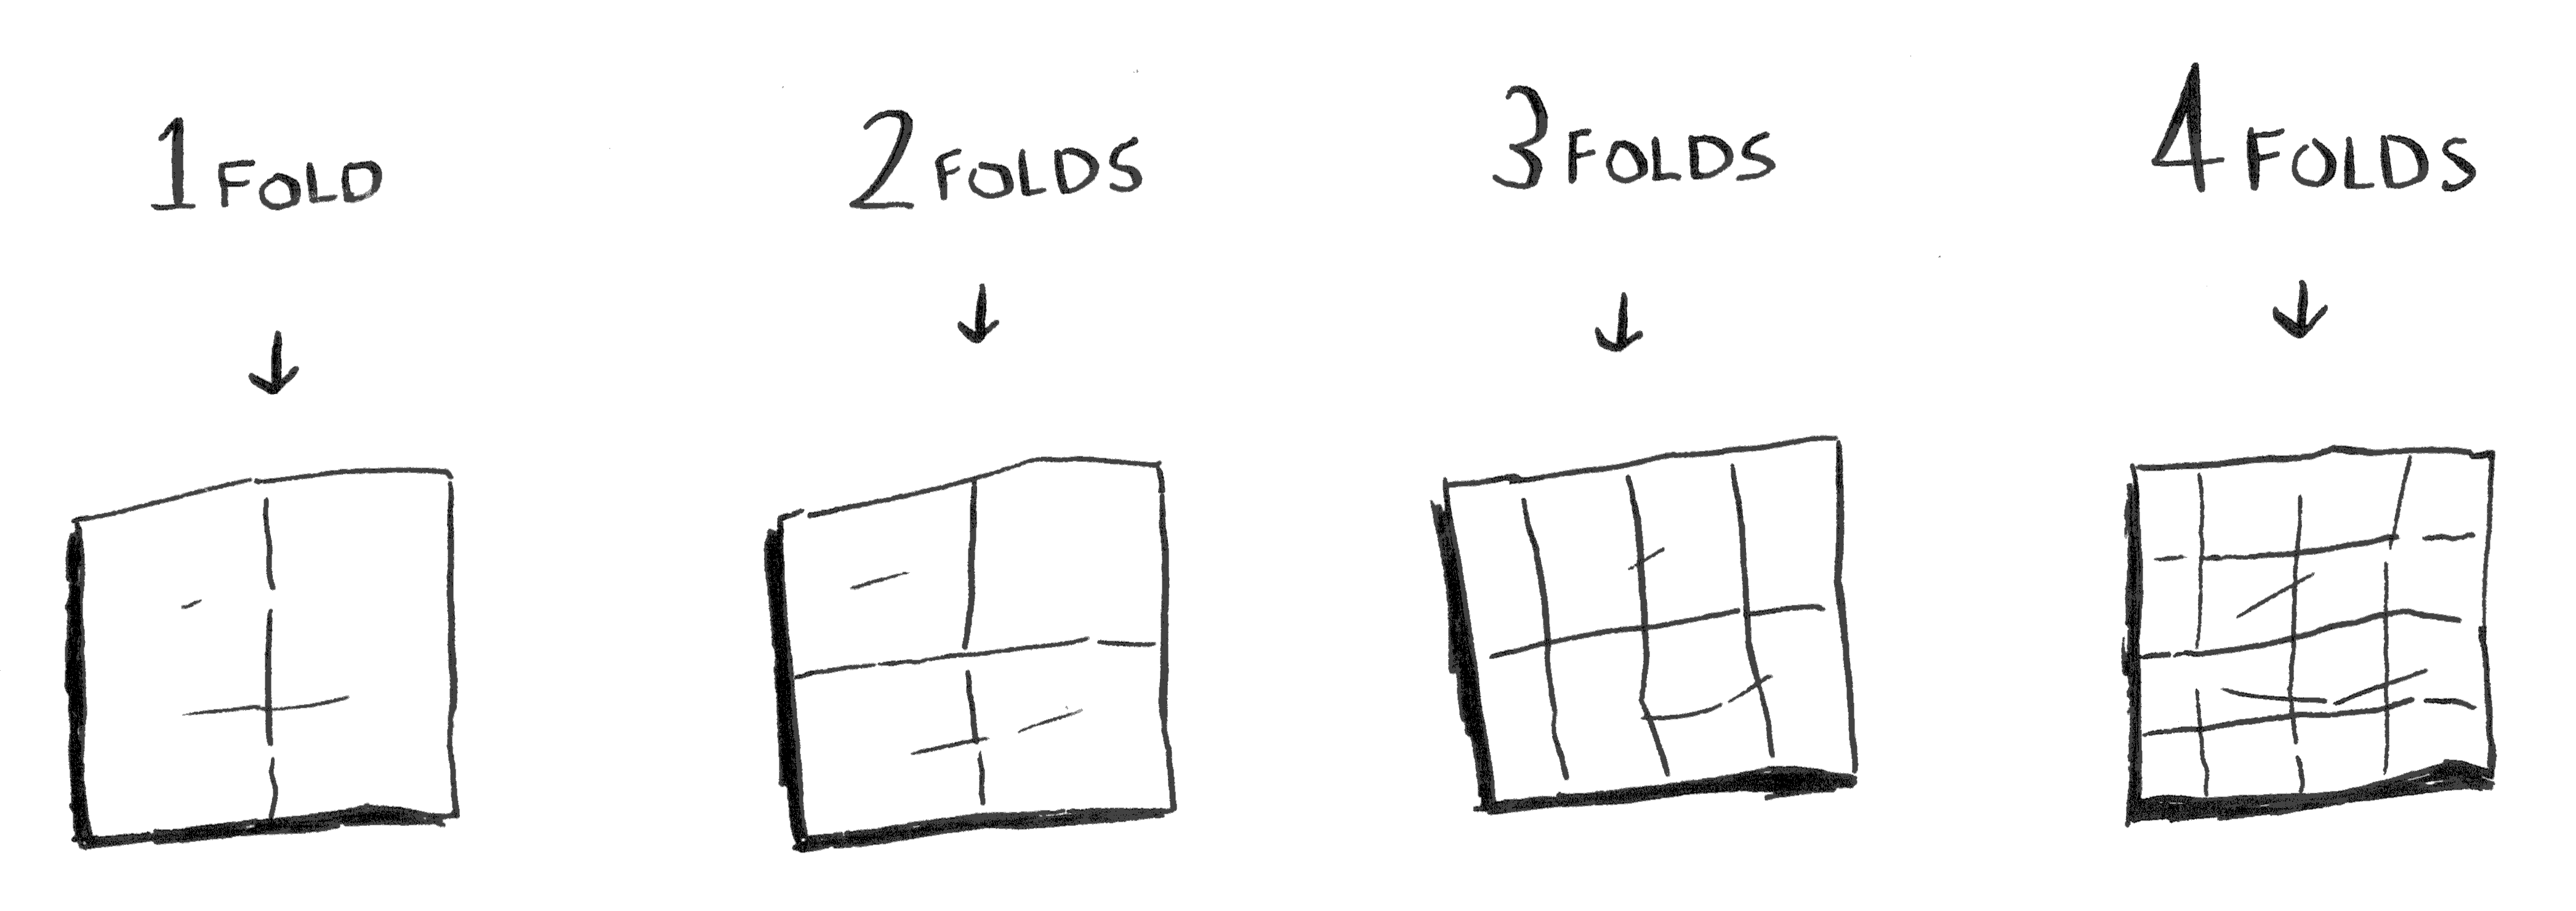 1 FOLD
2 FOLDS
3 FOLDS
4 FOLDS